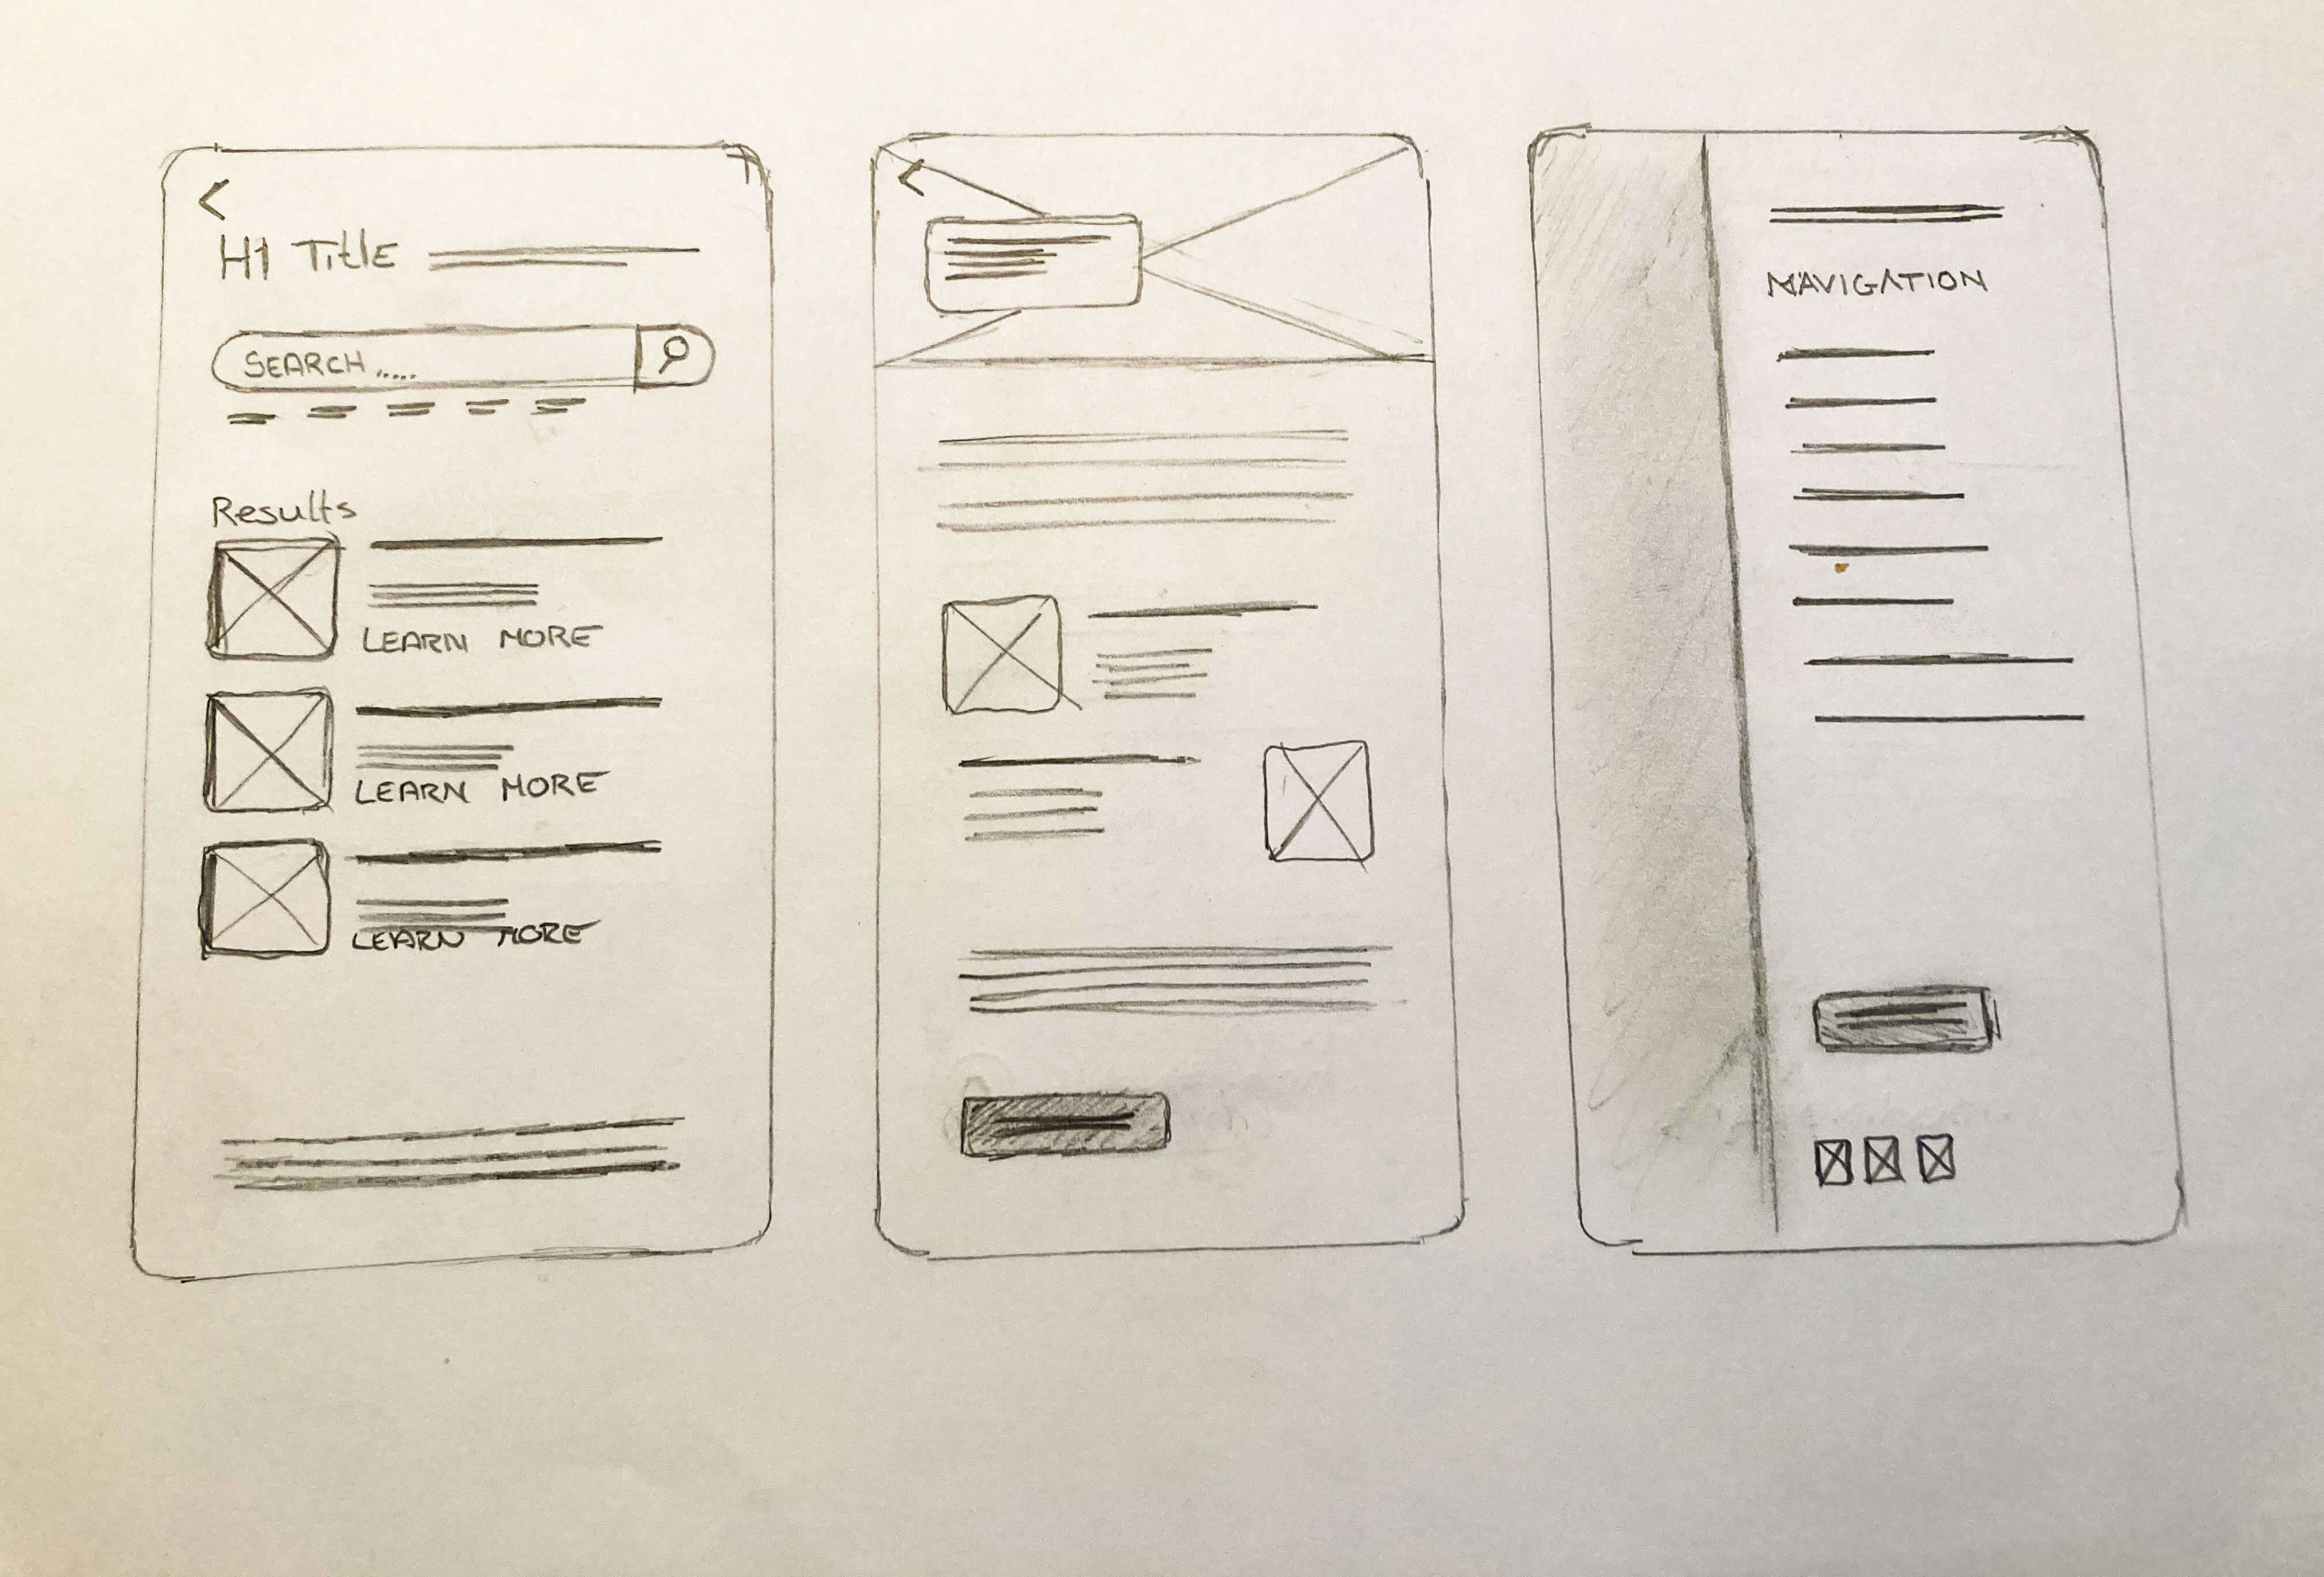 <
H1 Title
SEARCH.....
Results
LEARN MORE
LEARN MORE
LEARN MORE
<
NAVIGATION